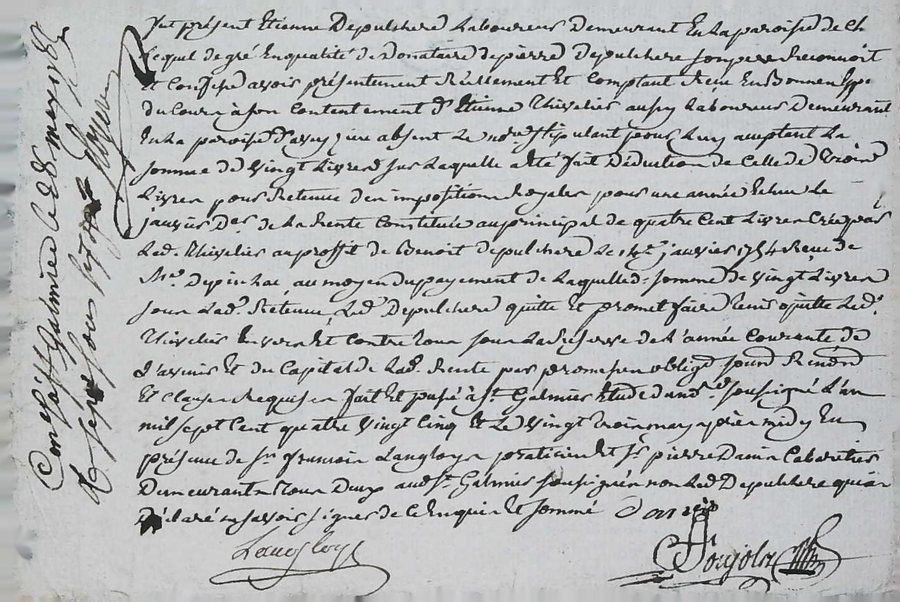 fut présent Etienne Depulchere Laboureur Demeurant En La paroisse de Ch
Lequel de gré En qualité de Donataire de pierre Depulchere son pere Reconnoit
Et Confesse avoir présentement Réellement Et Comptant Receu En Bonnes Esp.
du Cour a son Contentement d'Etienne Thivelier aussy Laboureur Demeurant
En La paroisse d'aveyzieu absent Le no.re stipulant pour Luy acceptant La
somme de Vingt Livres sur Laquelle a été fait Déduction de Celle de Trois
Livres pour Retenue des impositions Royales pour une année Echue Le
janvier D.er de La Rente Constituée au principal de quatre Cent Livres Créé par
Led. Thivelier au proffit de Benoit depulchere Le janvier 1754 Reçue de
M.e Depinhac, au moyen du payement de Laquelle d. somme de Vingt Livres
sous Lad. Retenue, Led. Depulchere quitte Et promet faire tenir quitte Led.
Thivelier Envers Et Contre tous sous La Reserve de L'année Courante de
d'avenir Et du Capital de Lad. Rente par promesses obligeé soumd Rendrd
Et Clauses Requises fait Et passé à St. Galmier Etude du no.re soussigné L'an
mil sept Cent quatre Vingt Cinq Et Le Vingt Trois may après midy En
présence de Sr. françois Langloys praticien Et Sr. pierre Dania Cabaretier
Demeurants Tous Deux aud. St. Galmier soussignés non Led. Depulchere qui a
Déclaré ne savoir signer de Ce Enquis Et sommé
Langloys
Ponjola
Con.lé à St. Galmier Le 28 may 1785
R. sept sous six d.